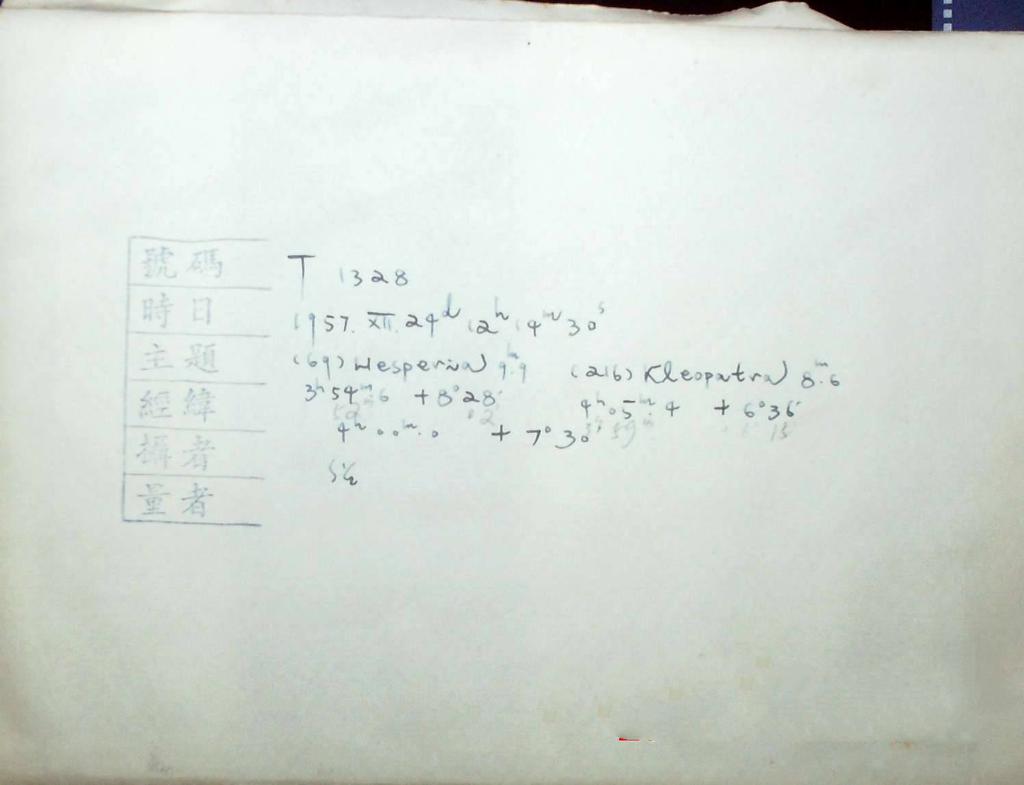 號碼 T 1328
時日 1957. XII. 24ᵈ 12ʰ 14ᵐ 30ˢ
主題 (69) Hesperia 9ᵐ.9 (216) Kleopatra 8ᵐ.6
經緯 3ʰ 54ᵐ.6 +8°28′ 4ʰ 05ᵐ.4 +6°36′
4ʰ 00ᵐ.0 +7°30′
攝者
量者